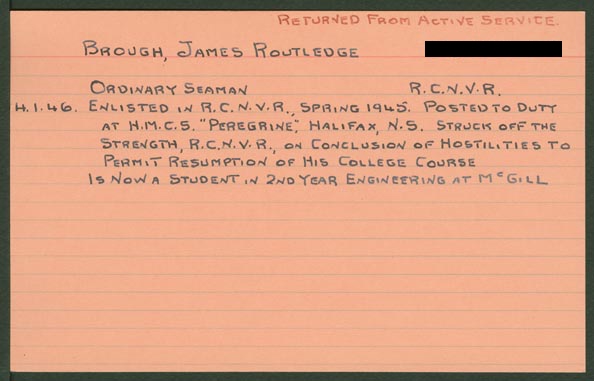 RETURNED FROM ACTIVE SERVICE.
BROUGH, JAMES ROUTLEDGE
ORDINARY SEAMAN R.C.N.V.R.
4.1.46. ENLISTED IN R.C.N.V.R., SPRING 1945. POSTED TO DUTY
AT H.M.C.S. "PEREGRINE", HALIFAX, N.S. STRUCK OFF THE
STRENGTH, R.C.N.V.R., ON CONCLUSION OF HOSTILITIES TO
PERMIT RESUMPTION OF HIS COLLEGE COURSE
IS NOW A STUDENT IN 2ND YEAR ENGINEERING AT MCGILL